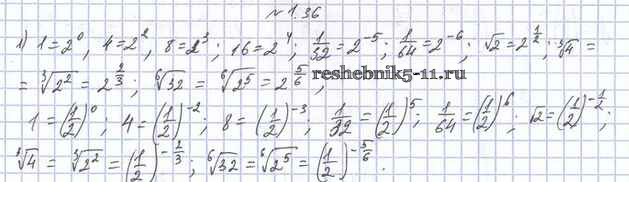 № 1.36
1) 1 = 2⁰, 4 = 2², 8 = 2³; 16 = 2⁴; 1/32 = 2⁻⁵; 1/64 = 2⁻⁶; √2 = 2^(1/2); ∛4 =
= ∛(2²) = 2^(2/3); ⁶√32 = ⁶√(2⁵) = 2^(5/6);
reshebnik5-11.ru
1 = (1/2)⁰; 4 = (1/2)⁻²; 8 = (1/2)⁻³; 1/32 = (1/2)⁵; 1/64 = (1/2)⁶; √2 = (1/2)^(-1/2);
∛4 = ∛(2²) = (1/2)^(-2/3); ⁶√32 = ⁶√(2⁵) = (1/2)^(-5/6).